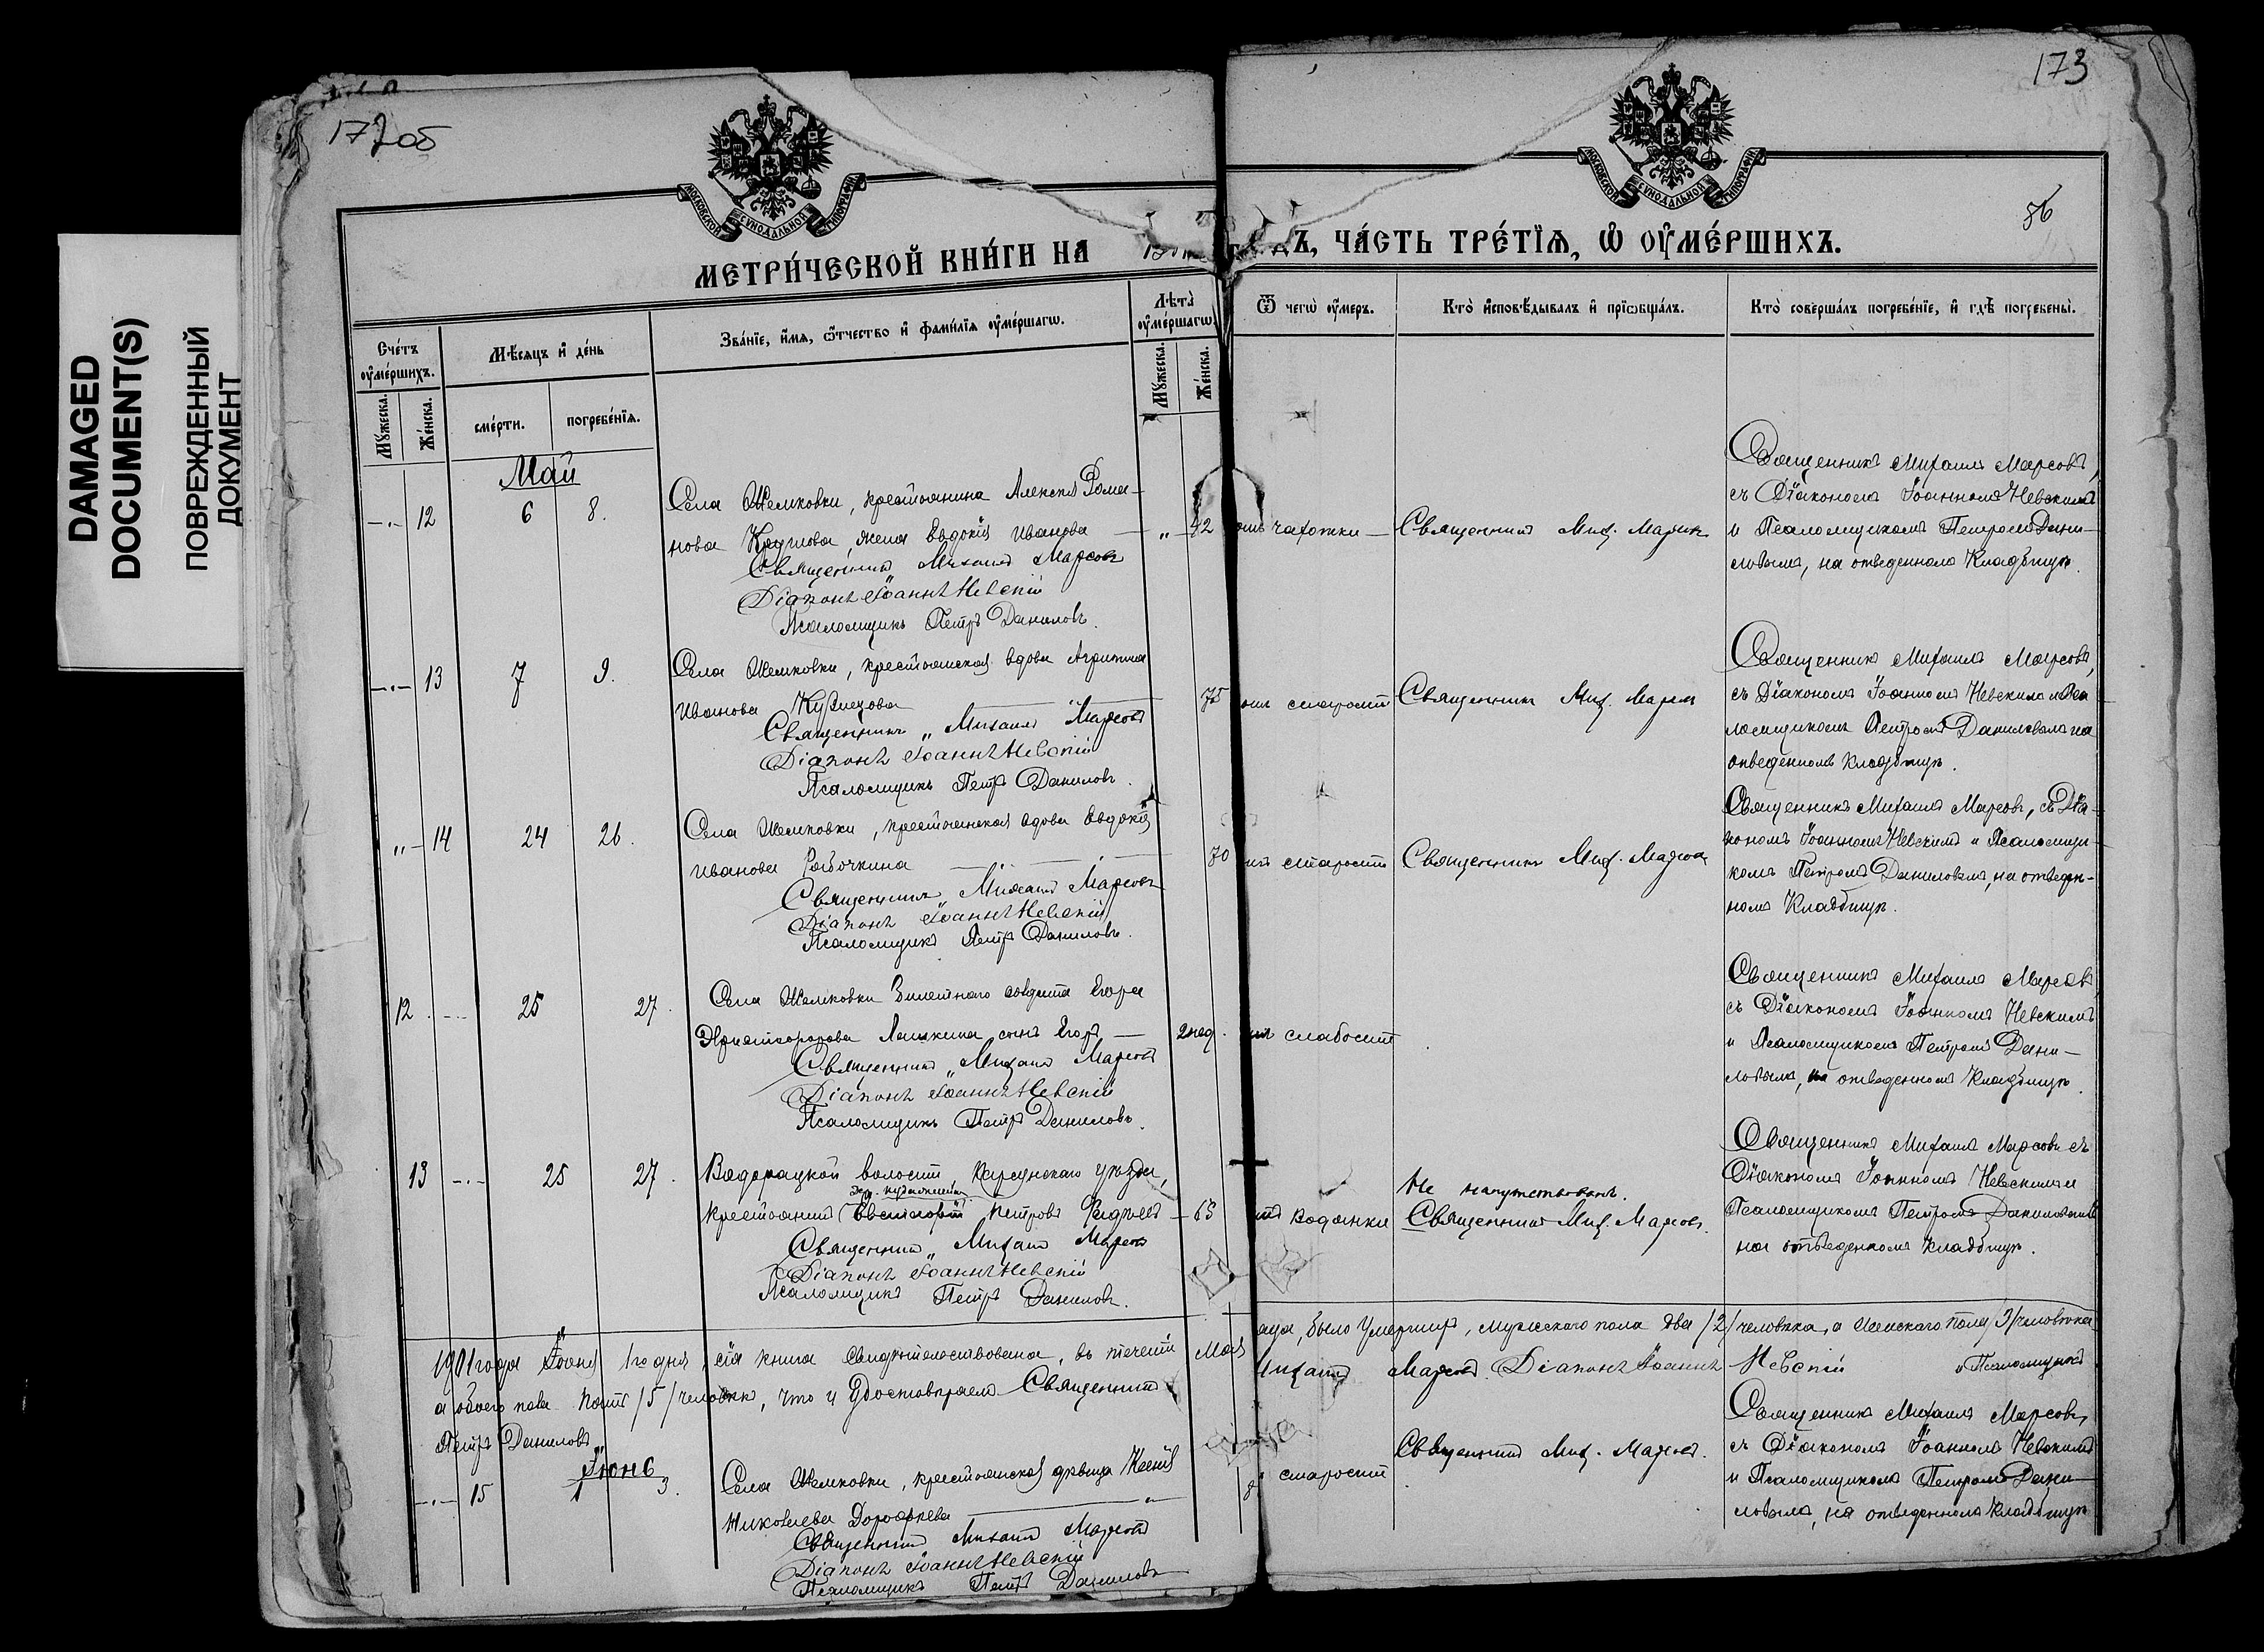 DAMAGED
DOCUMENT(S)
ПОВРЕЖДЕННЫЙ
ДОКУМЕНТ
172об
173
МОСКОВСКОЙ СѴНОДАЛЬНОЙ ТИПОГРАФІИ
МОСКОВСКОЙ СѴНОДАЛЬНОЙ ТИПОГРАФІИ
86
МЕТРИ́ЧЕСКОЙ КНИ́ГИ НА ДЪ, ЧА́СТЬ ТРЕ́ТЇѦ, Ѽ ОУ҆МЕ́РШИХЪ.
Сче́тъ оу҆ме́ршихъ.
Мꙋ́жеска. Же́нска.
Мѣ́сѧцъ и҆ де́нь
сме́рти. погребе́нїѧ.
Зва́нїе, и҆́мѧ, ѻ҆́тчество и҆ фами́лїѧ оу҆ме́ршагѡ.
Лѣ́та оу҆ме́ршагѡ.
Мꙋ́жеска. Же́нска.
Ѿ чегѡ̀ оу҆́меръ.
Кто̀ и҆сповѣ́дывалъ и҆ прїѡбща́лъ.
Кто̀ соверша́лъ погребе́нїе, и҆ гдѣ̀ погребены̀.
Май
12 6 8.
Села Жемковки, крестьянина Алексѣя Рома-
нова, жена Евдокія Иванова — „ 42
Священникъ Михаилъ Марсовъ
Діаконъ Іоаннъ Невскій
Псаломщикъ Петръ Даниловъ.
отъ чахотки
Священникъ Мих. Марсовъ
Священникъ Михаилъ Марсовъ,
съ Діакономъ Іоанномъ Невскимъ
и Псаломщикомъ Петромъ Дани-
ловымъ, на отведенномъ кладбищѣ.
13 7 9.
Села Жемковки, крестьянская вдова Агрипина
Иванова Кузнецова 75
Священникъ Михаилъ Марсовъ
Діаконъ Іоаннъ Невскій
Псаломщикъ Петръ Даниловъ.
отъ старости
Священникъ Мих. Марсовъ
Священникъ Михаилъ Марсовъ,
съ Діакономъ Іоанномъ Невскимъ и Пса-
ломщикомъ Петромъ Даниловымъ на
отведенномъ кладбищѣ.
„ 14 24 26.
Села Жемковки, крестьянская вдова Евдокія
Иванова Рябочкина 70
Священникъ Михаилъ Марсовъ
Діаконъ Іоаннъ Невскій
Псаломщикъ Петръ Даниловъ.
старости
Священникъ Мих. Марсовъ
Священникъ Михаилъ Марсовъ, съ Діа-
кономъ Іоанномъ Невскимъ и Псаломщи-
комъ Петромъ Даниловымъ, на отведен-
номъ кладбищѣ.
12 25 27.
Села Жемковки билетнаго солдата Егора
Христофорова Лашкина, сынъ Егоръ — 2 нед.
Священникъ Михаилъ Марсовъ
Діаконъ Іоаннъ Невскій
Псаломщикъ Петръ Даниловъ.
слабости
Священникъ Михаилъ Марсовъ
съ Діакономъ Іоанномъ Невскимъ
и Псаломщикомъ Петромъ Дани-
ловымъ, на отведенномъ кладбищѣ.
13 25 27.
волости Карсунскаго уѣзда,
крестьянинъ Петровъ — 65
Священникъ Михаилъ Марсовъ
Діаконъ Іоаннъ Невскій
Псаломщикъ Петръ Даниловъ.
водянки
Не напутствованъ.
Священникъ Мих. Марсовъ.
Священникъ Михаилъ Марсовъ съ
Діакономъ Іоанномъ Невскимъ и
Псаломщикомъ Петромъ Даниловымъ
на отведенномъ кладбищѣ.
1901 года Іюня 1го дня, сія книга свидѣтельствована, въ теченіи Мая
было умершихъ, мужескаго пола два /2/ человѣка, а женскаго пола /3/ человѣка
а обоего пола пять /5/ человѣкъ, что и удостовѣряемъ Священникъ
Михаилъ Марсовъ. Діаконъ Іоаннъ Невскій и Псаломщикъ
Петръ Даниловъ
Іюнь
15 1 3.
Села Жемковки, крестьянская дѣвица Ксенія
Николаева Дорофѣева
Священникъ Михаилъ Марсовъ
Діаконъ Іоаннъ Невскій
Псаломщикъ Петръ Даниловъ
старости
Священникъ Мих. Марсовъ.
Священникъ Михаилъ Марсовъ,
съ Діакономъ Іоанномъ Невскимъ
и Псаломщикомъ Петромъ Дани-
ловымъ, на отведенномъ кладбищѣ